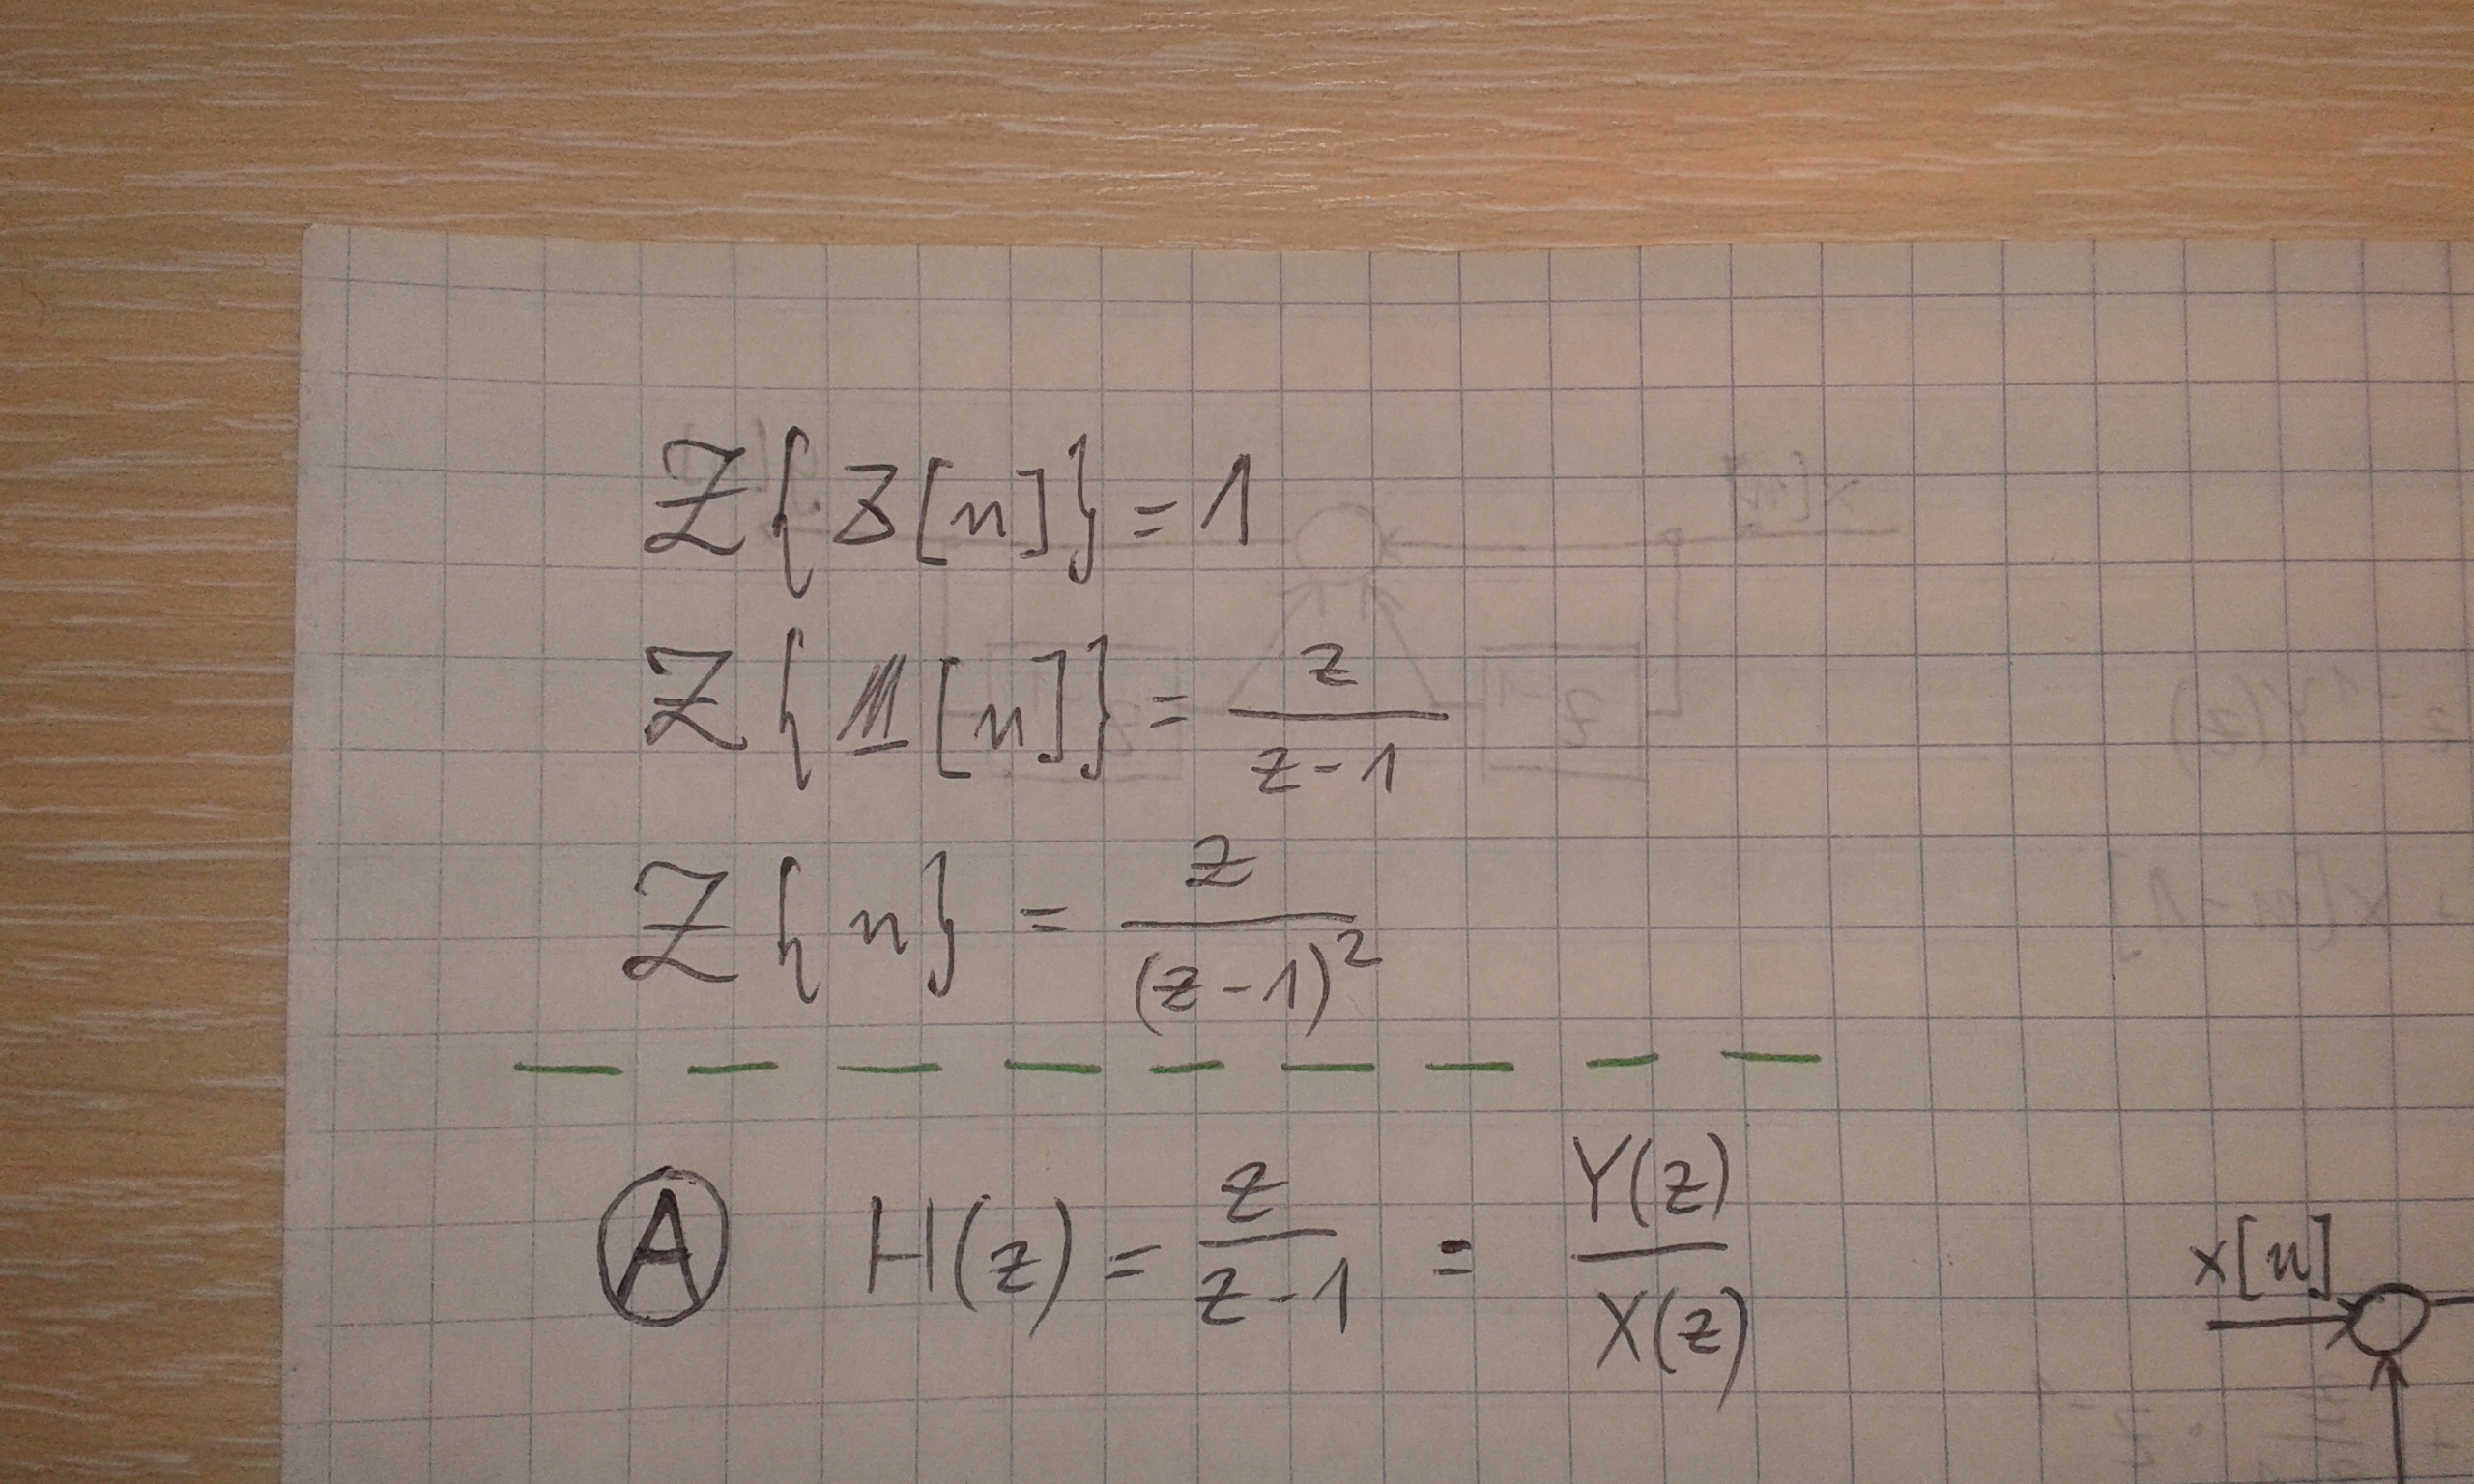 Z{δ[n]} = 1
Z{𝟙[n]} = z/(z-1)
Z{n} = z/(z-1)²
A H(z) = z/(z-1) = Y(z)/X(z)
x[n]